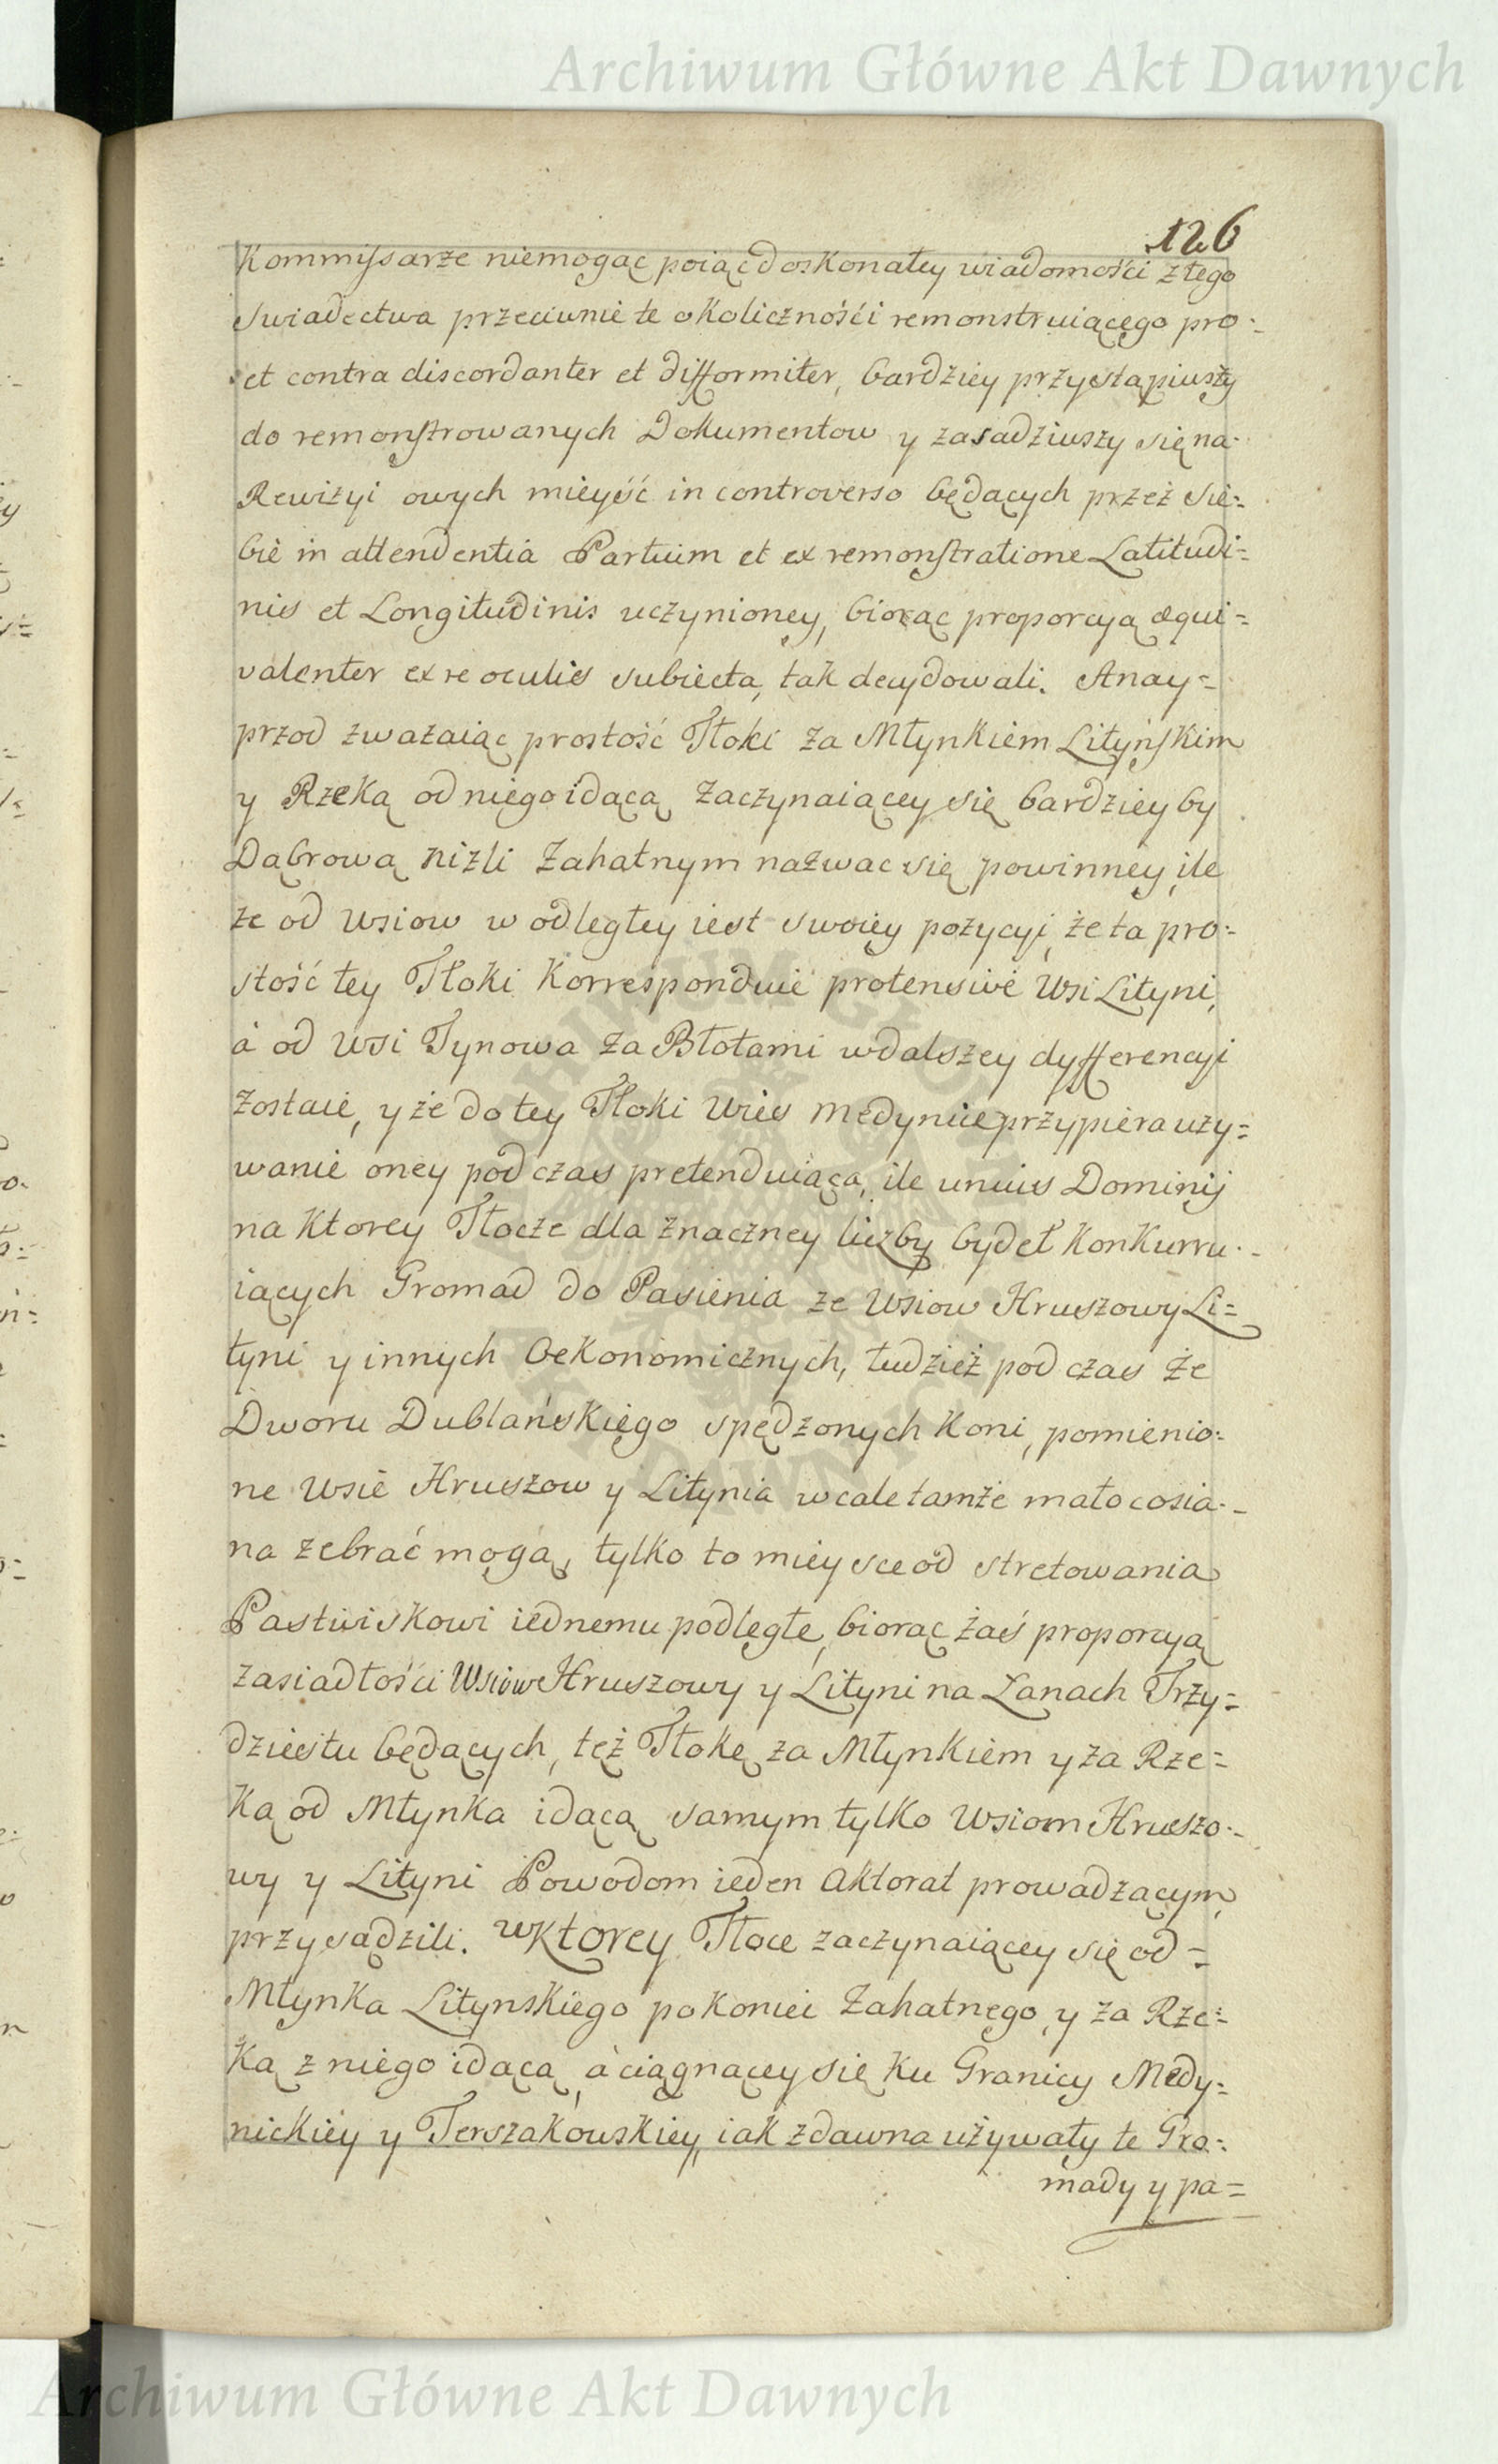 Archiwum Główne Akt Dawnych
126
Kommissarze niemogąc poiąc doskonałey wiadomości z tego
swiadectwa przeciwnie te okoliczności remonstruiącego pro-
et contra discordanter et difformiter, bardziey przystąpiwszy
do remonstrowanych Dokumentow y zasadziwszy się na
Rewizyi owych mieyść in controverso będących przez sie=
bie in attendentia Partium et ex remonstratione Latitudi=
nis et Longitudinis uczynioney, biorąc proporcyą æqui=
valenter ex re oculis subiecta, tak decydowali. Anay=
przod zważaiąc prostość Tłoki za Młynkiem Lityńskim
y Rzeką od niego idącą zaczynaiącey się bardziey by
Dąbrową niżli Zahatnym nazwac się powinney, ile
że od Wsiow w odległey iest swoiey pozycyi, że ta pro-
stość tey Tłoki korresponduie protensive Wsi Lityni,
à od Wsi Tynowa za Błotami w dalszey dyfferencyi
zostaie, y że do tey Tłoki Wies Medynice przypiera uży=
wanie oney pod czas pretenduiąca, ile unius Dominij
na ktorey Tłocze dla znaczney liczby bydeł konkurru-
iących Gromad do Pasienia ze Wsiow Hruszowy Li=
tyni y innych Oekonomicznych, tudzież pod czas że
Dworu Dublańskiego spędzonych koni, pomienio-
ne Wsie Hruszow y Litynia wcale tamże mało co sia-
na zebrać mogą, tylko to mieysce od stretowania
Pastwiskowi iednemu podległe, biorąc żaś proporcyą
zasiadłości Wsiow Hruszowy y Lityni na Łanach Trzy=
dziestu będących, też Tłokę za Młynkiem y za Rze=
ką od Młynka idącą samym tylko Wsiom Hruszo-
wy y Lityni Powodom ieden Aktorat prowadzącym,
przysądzili. w ktorey Tłoce zaczynaiącey się od=
Młynka Litynskiego po koniec Zahatnego, y za Rze=
ką z niego idącą, à ciągnącey się ku Granicy Medy=
nickiey y Terszakowskiey, iak zdawna używały te Gro-
mady y pa=
Archiwum Główne Akt Dawnych